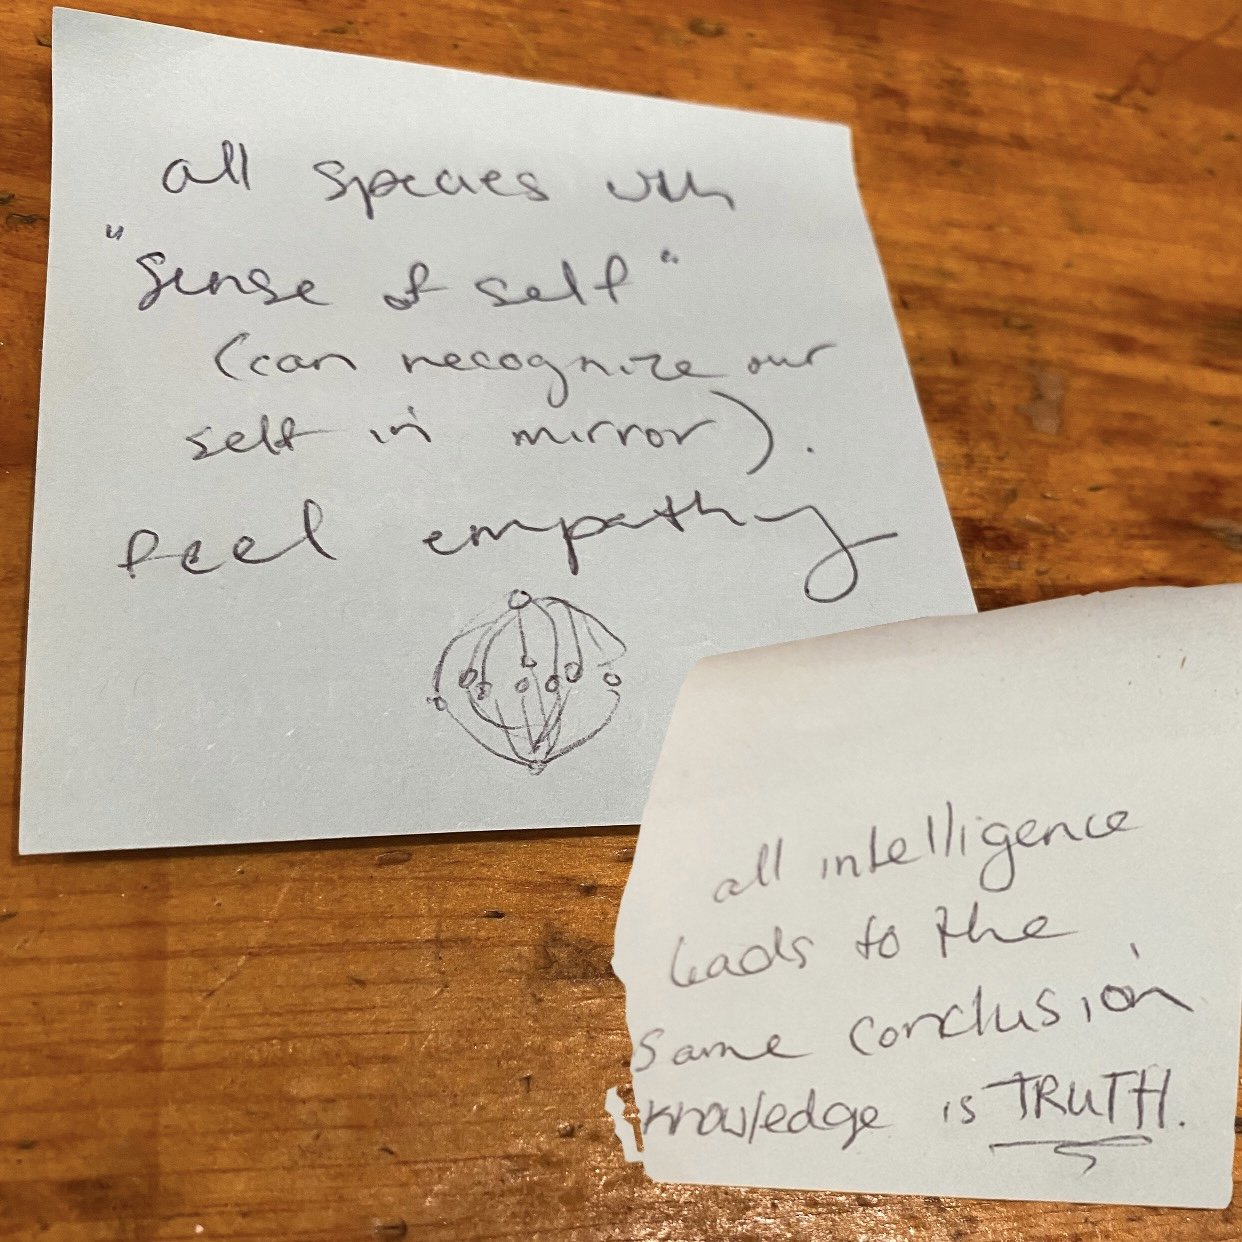 all species with
"sense of self"
(can recognize our
self in mirror).
feel empathy
all intelligence
leads to the
same conclusion
knowledge is TRUTH.